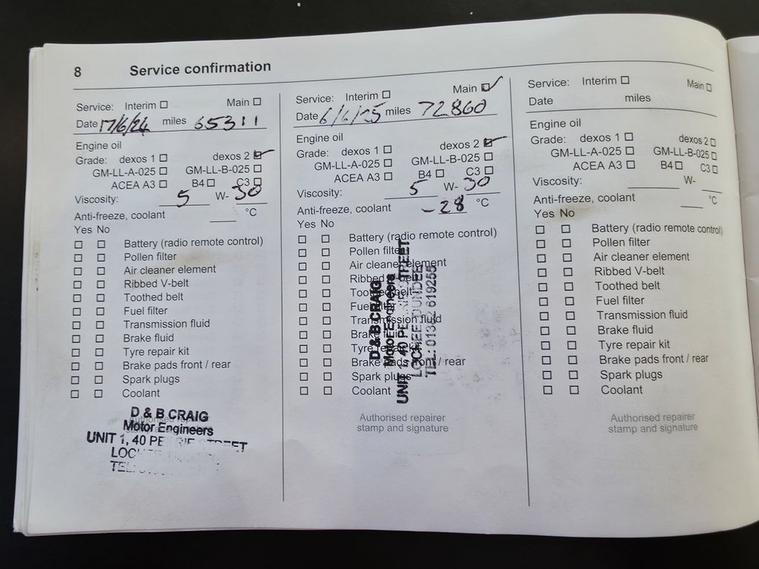 8 Service confirmation
Service: Interim ☐ Main ☐
Date 17/6/24 miles 65311
Engine oil
Grade: dexos 1 ☐ dexos 2 ☑
GM-LL-A-025 ☐ GM-LL-B-025 ☐
ACEA A3 ☐ B4 ☐ C3 ☐
Viscosity: 5 W- 30
Anti-freeze, coolant °C
Yes No
☐ ☐ Battery (radio remote control)
☐ ☐ Pollen filter
☐ ☐ Air cleaner element
☐ ☐ Ribbed V-belt
☐ ☐ Toothed belt
☐ ☐ Fuel filter
☐ ☐ Transmission fluid
☐ ☐ Brake fluid
☐ ☐ Tyre repair kit
☐ ☐ Brake pads front / rear
☐ ☐ Spark plugs
☐ ☐ Coolant
D & B CRAIG
Motor Engineers
UNIT 1, 40
TEL:
Service: Interim ☐ Main ☑
Date 6/6/25 miles 72860
Engine oil
Grade: dexos 1 ☐ dexos 2 ☑
GM-LL-A-025 ☐ GM-LL-B-025 ☐
ACEA A3 ☐ B4 ☐ C3 ☐
Viscosity: 5 W- 30
Anti-freeze, coolant -28 °C
Yes No
☐ ☐ Battery (radio remote control)
☐ ☐ Pollen filter
☐ ☐ Air cleaner element
☐ ☐ Ribbed
☐ ☐ Toothed belt
☐ ☐ Fuel
☐ ☐ Transmission fluid
☐ ☐ Brake fluid
☐ ☐ Tyre
☐ ☐ Brake pads front / rear
☐ ☐ Spark plugs
☐ ☐ Coolant
D & B CRAIG
Motor Engineers
UNIT 1, 40 STREET
LOCHEE DUNDEE
TEL: 619255
Authorised repairer
stamp and signature
Service: Interim ☐ Main ☐
Date miles
Engine oil
Grade: dexos 1 ☐ dexos 2 ☐
GM-LL-A-025 ☐ GM-LL-B-025 ☐
ACEA A3 ☐ B4 ☐ C3 ☐
Viscosity: W-
Anti-freeze, coolant °C
Yes No
☐ ☐ Battery (radio remote control)
☐ ☐ Pollen filter
☐ ☐ Air cleaner element
☐ ☐ Ribbed V-belt
☐ ☐ Toothed belt
☐ ☐ Fuel filter
☐ ☐ Transmission fluid
☐ ☐ Brake fluid
☐ ☐ Tyre repair kit
☐ ☐ Brake pads front / rear
☐ ☐ Spark plugs
☐ ☐ Coolant
Authorised repairer
stamp and signature